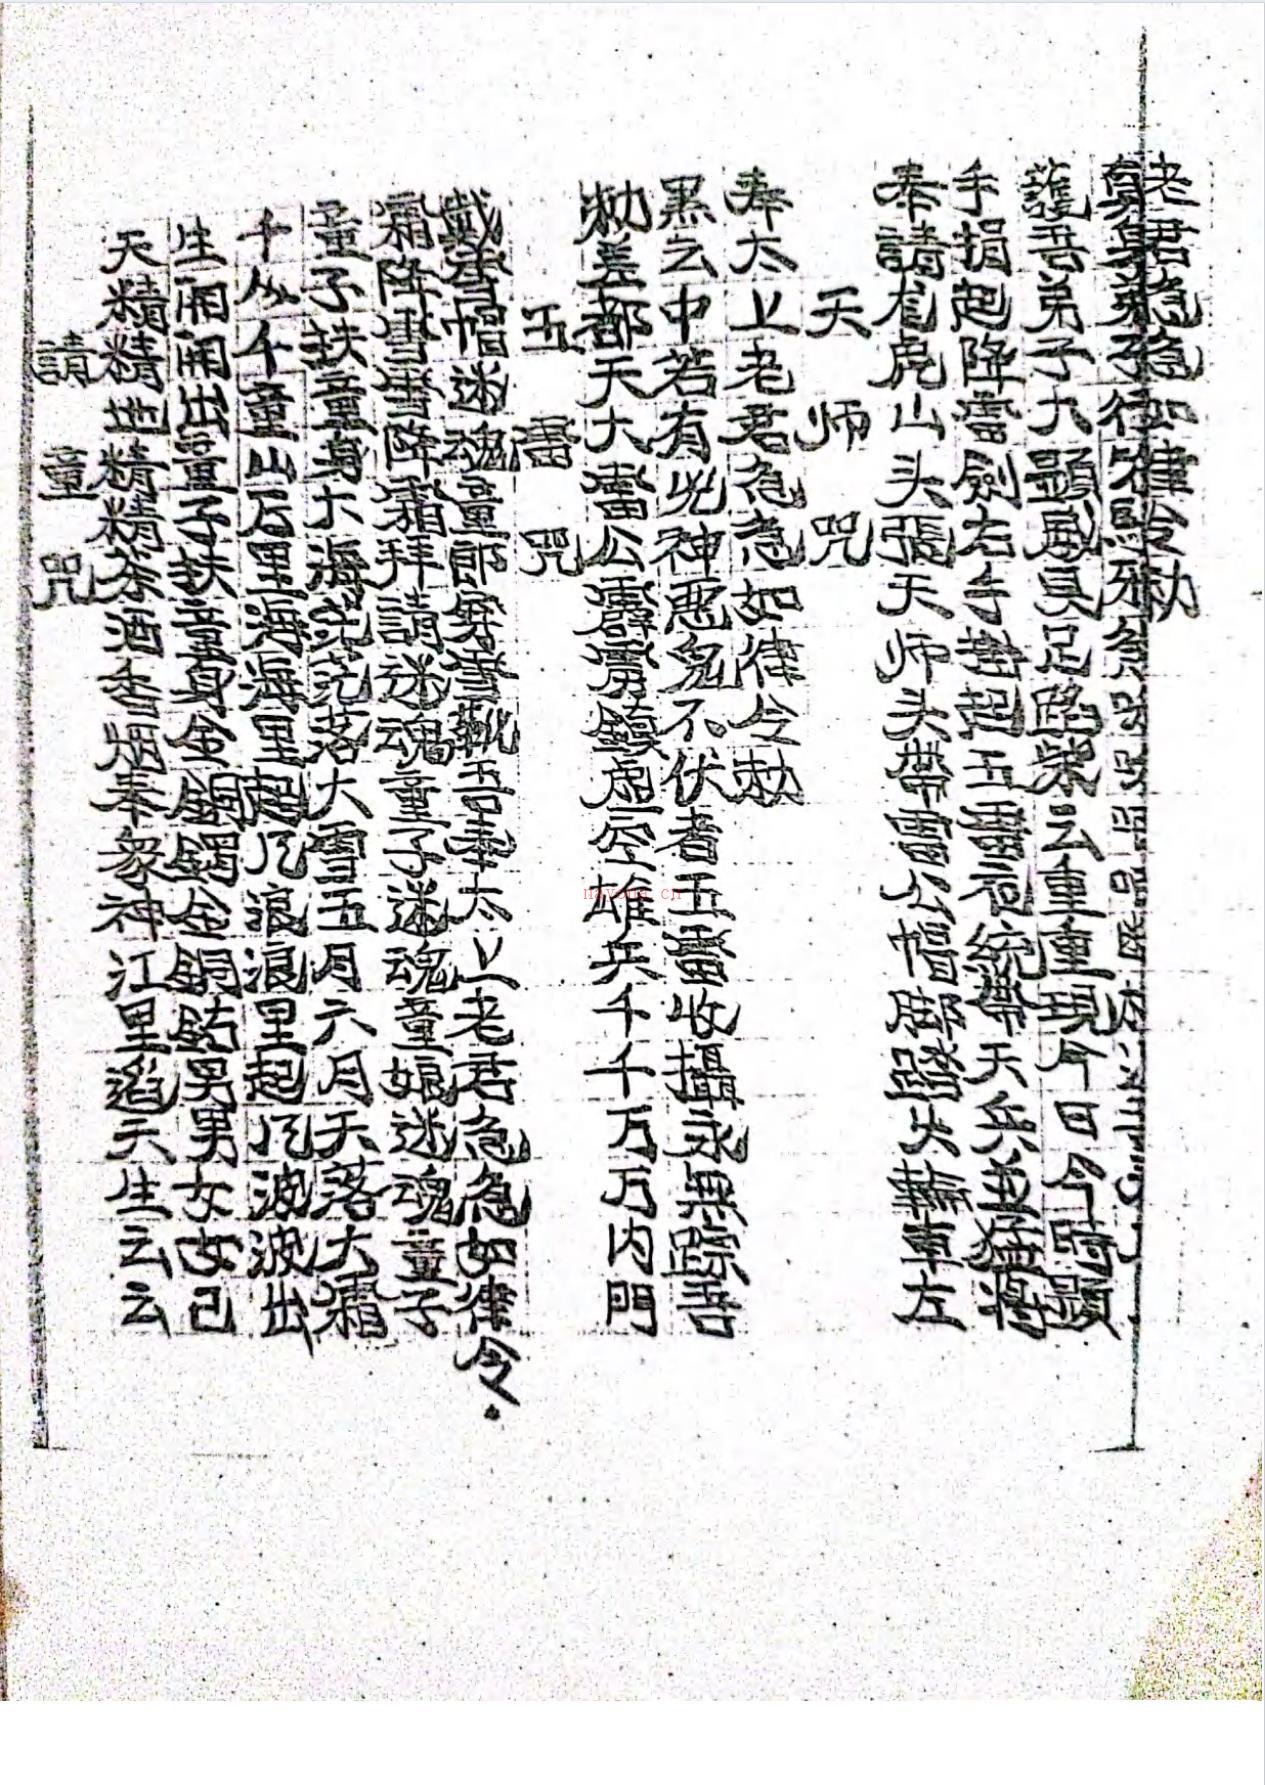 老君急急如律令勅
護吾弟子大顯威具足踏柴云重重現今日今時顯
手捐起降雷劍右手起五雷統帶天兵並猛将
奉請尨虎山头張天师头帶雷公帽脚踏火輪車左
天师咒
奉太上老君急急如律令勅
黑云中若有兇神惡鬼不伏者五雷收攝永無踪吾
勅差都天大雷公霹靂鎮虚空雄兵千千万万内門
五雷咒
戴雪帽迷魂童郎穿雪靴吾奉太上老君急急如律令.
霜降雪雪降霜拜請迷魂童子迷魂童娘迷魂童子
童子扶童身大海茫茫落大雪五月六月天落大霜
千千童山后里海海里起风浪浪里起风波波出
生出童子扶童身金銅鑼金銅鈷男男女女己
天精精地精精茶酒香烟奉衆神江里遙天生云云
請童咒
nayona.cn